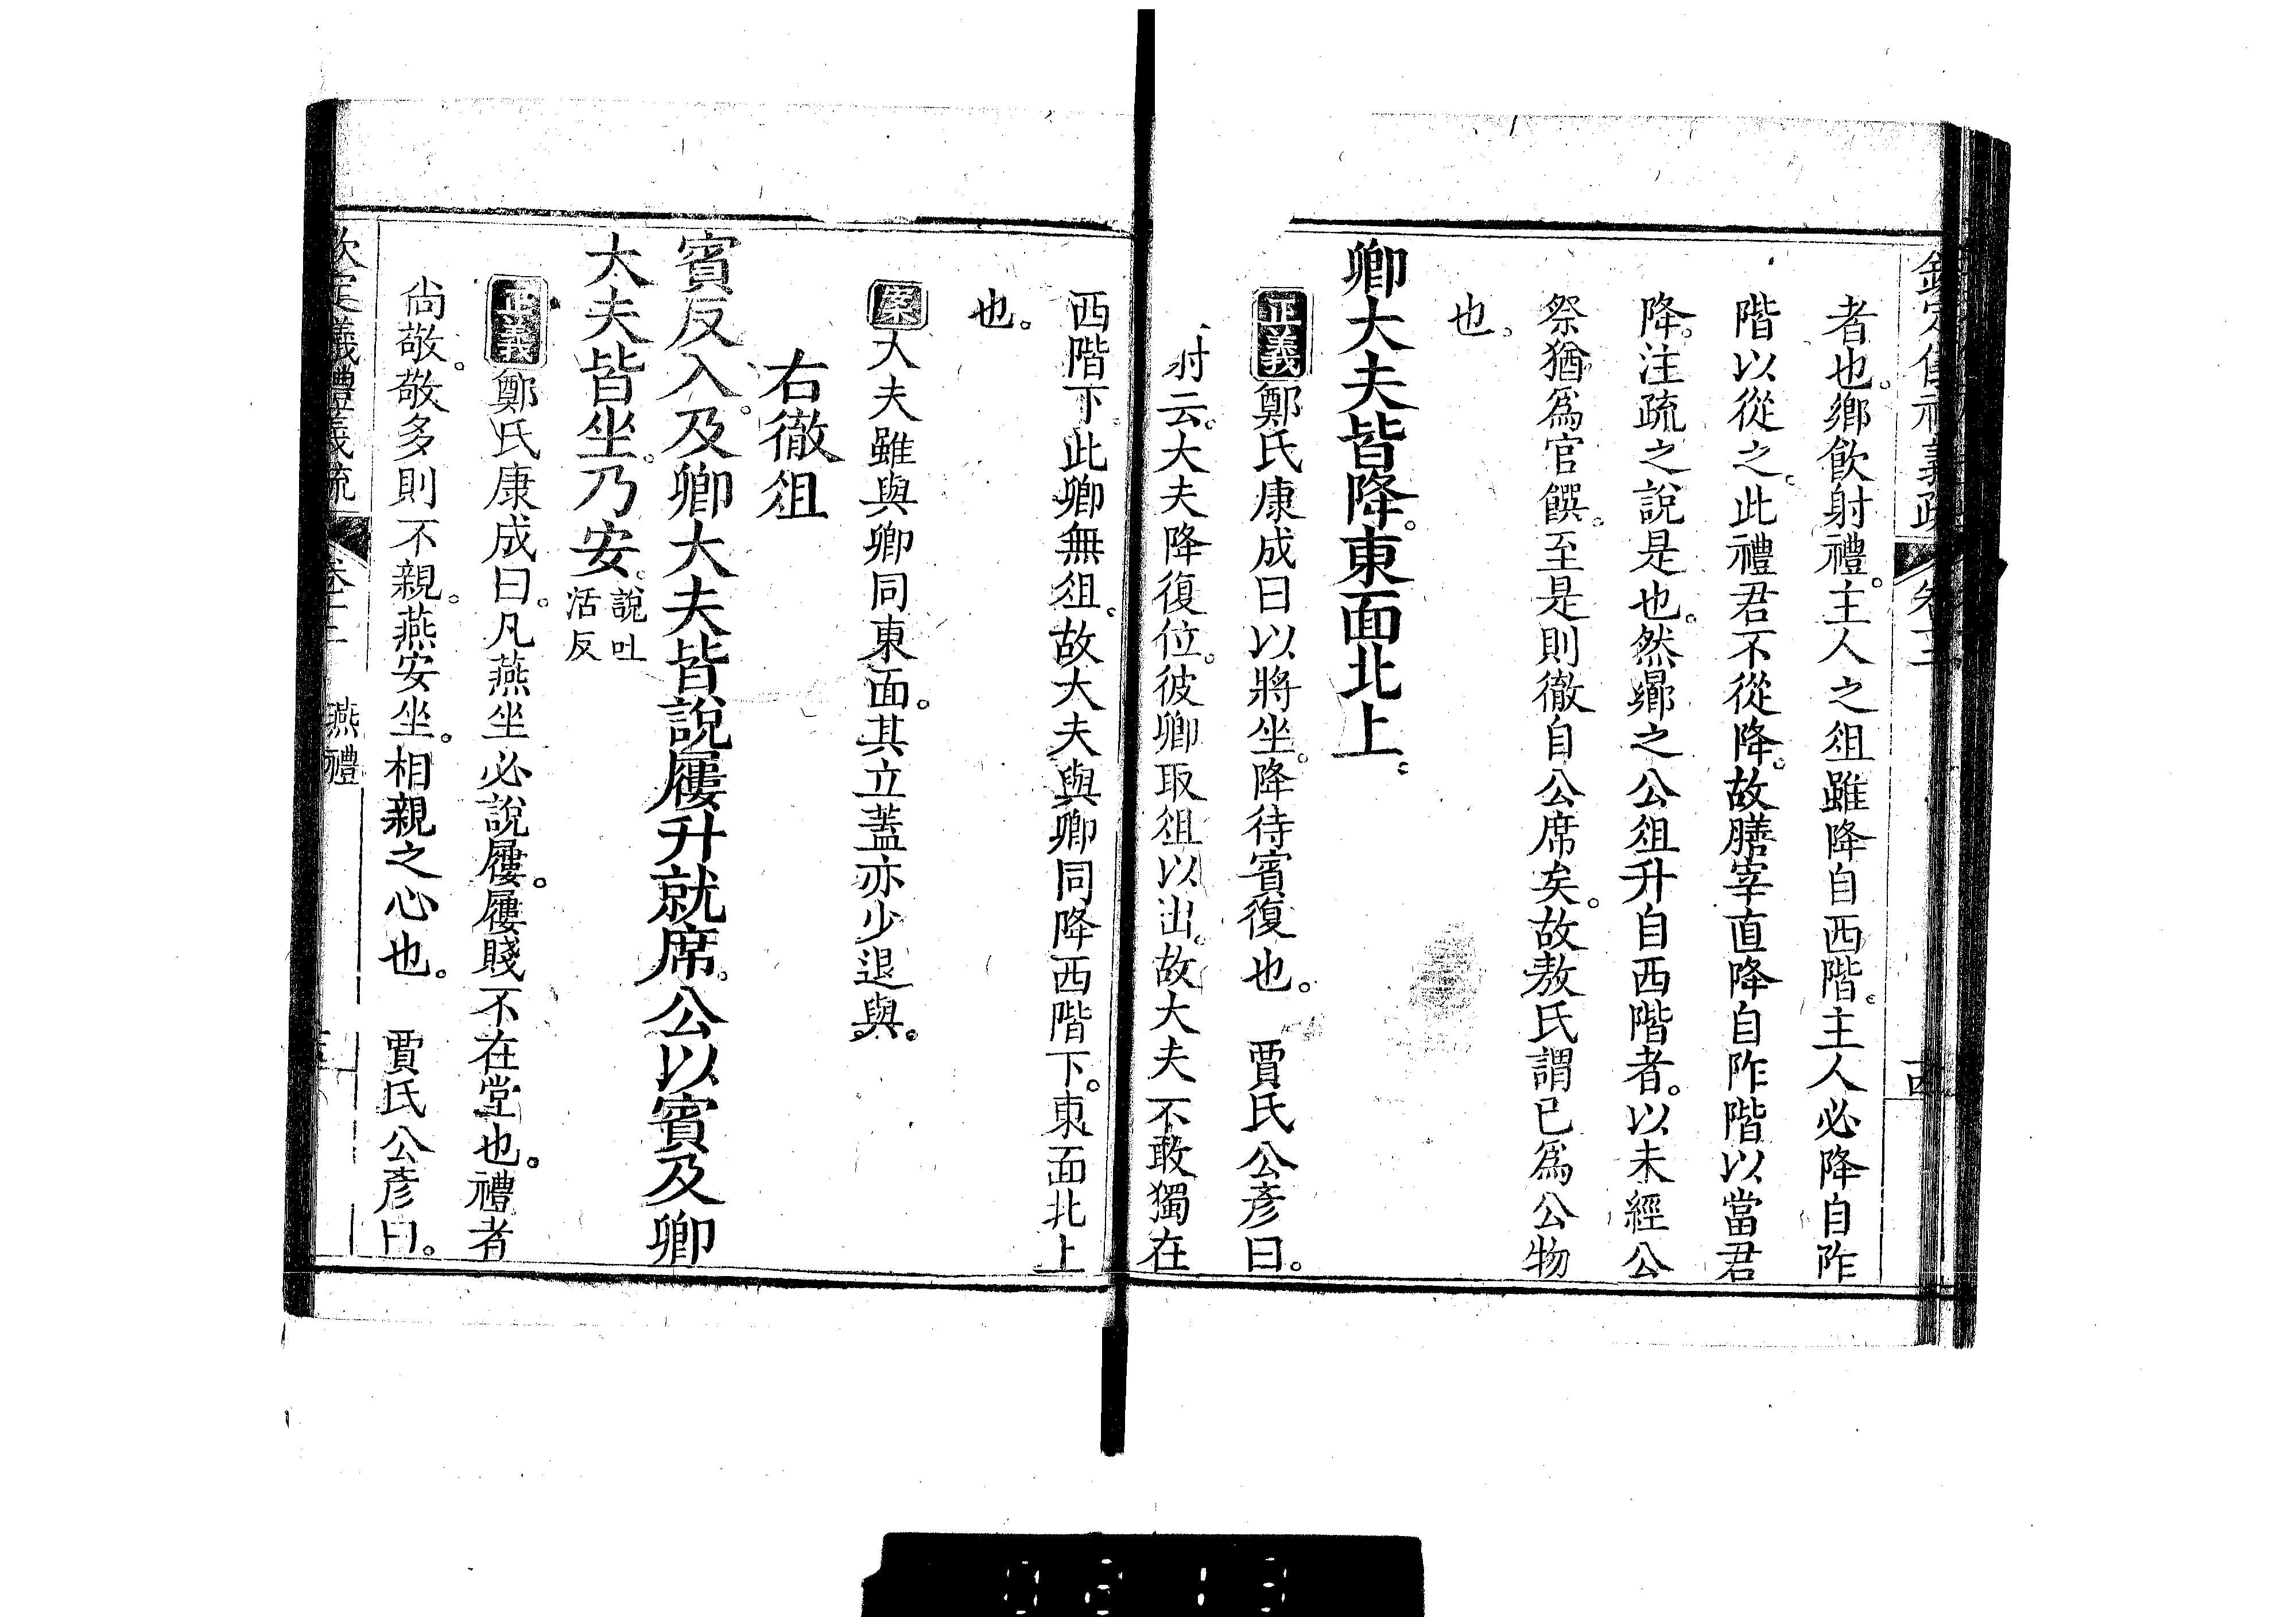 者也。鄉飲射禮。主人之俎雖降自西階。主人必降自阼
階以從之。此禮君不從降。故膳宰直降自阼階以當君
降。注疏之說是也。然曏之公俎升自西階者。以未經公
祭猶爲官饌。至是則徹自公席矣。故敖氏謂已爲公物
也。
卿大夫皆降。東面北上。
正義鄭氏康成曰以將坐。降待賓復也。 賈氏公彥曰。
射云。大夫降復位。彼卿取俎以出。故大夫不敢獨在
西階下。此卿無俎。故大夫與卿同降西階下。東面北上
也。
案大夫雖與卿同東面。其立蓋亦少退與。
右徹俎
賓反入。及卿大夫皆說屨升就席。公以賓及卿
大夫皆坐。乃安。說吐
活反
正義鄭氏康成曰。凡燕坐必說屨。屨賤不在堂也。禮者
尙敬。敬多則不親。燕安坐。相親之心也。 賈氏公彥曰。
儀禮義疏 燕禮